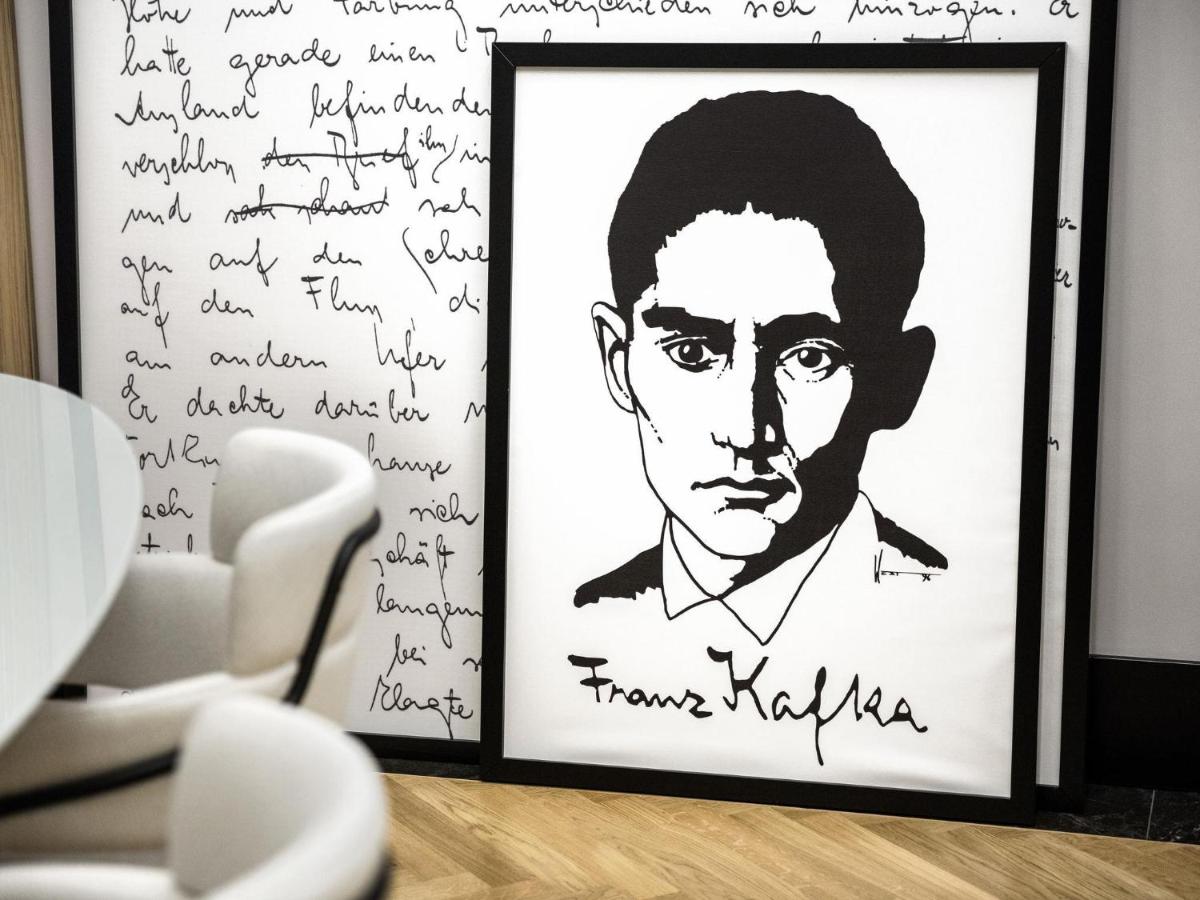 Höhe und Färbung unterschieden sich hinzogen. Er
hatte gerade einen
Ausland befindenden
verschloss den Brief ihn / in
und sah schaut sah
gen auf den Schre
auf den Fluss, di
am andern Ufer
Er dachte darüber
Fortku
hause
nach sich
schäft
langem
bei
klagte
Franz Kafka